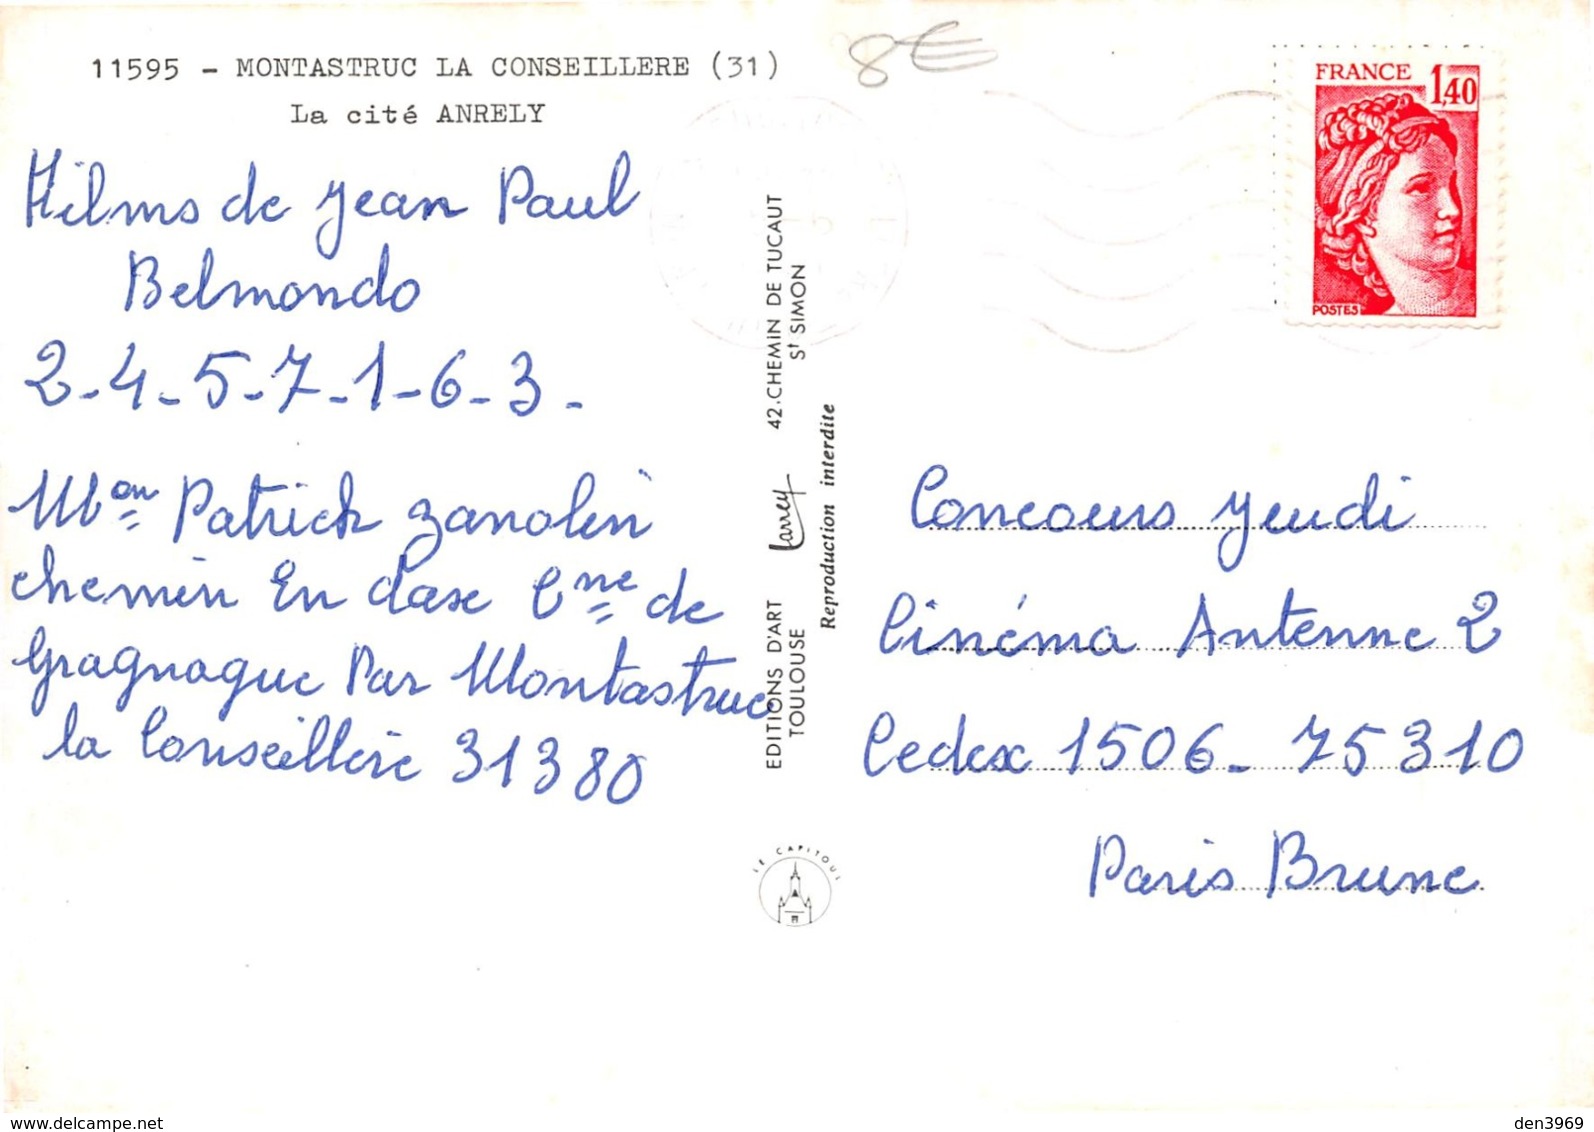 11595 - MONTASTRUC LA CONSEILLERE (31)
La cité ANRELY
8€
FRANCE
1,40
POSTES
Films de Jean Paul
Belmondo
2-4-5-7-1-6-3-
Mon Patrick Zanolin
chemin En dase Cne de
Gragnague Par Montastruc
la Conseillère 31380
EDITIONS D'ART Larrey 42.CHEMIN DE TUCAUT
TOULOUSE St SIMON
Reproduction interdite
LE CAPITOUL
Concours Jeudi
Cinéma Antenne 2
Cedex 1506- 75310
Paris Brune
delcampe.net
den3969